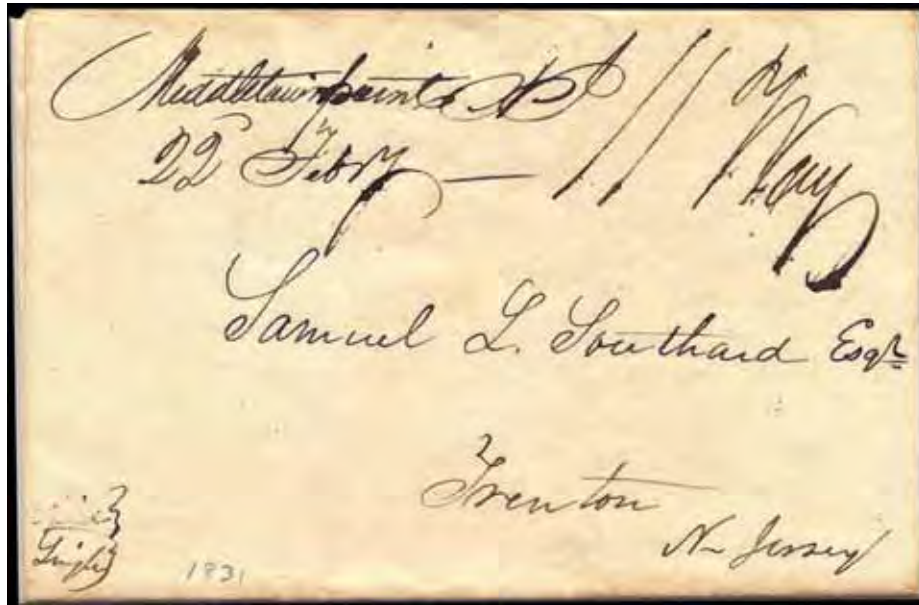 Middletownpoint NJ 11 Way
22 Feby —
Samuel L. Southard Esqr
Trenton
N Jersey
Single
1831